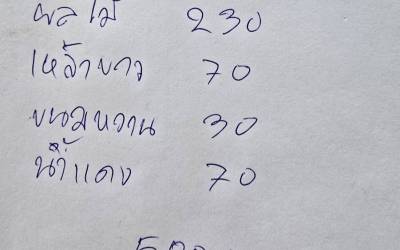 ผลไม้ 230
เหล้าขาว 70
ขนมหวาน 30
น้ำแดง 70